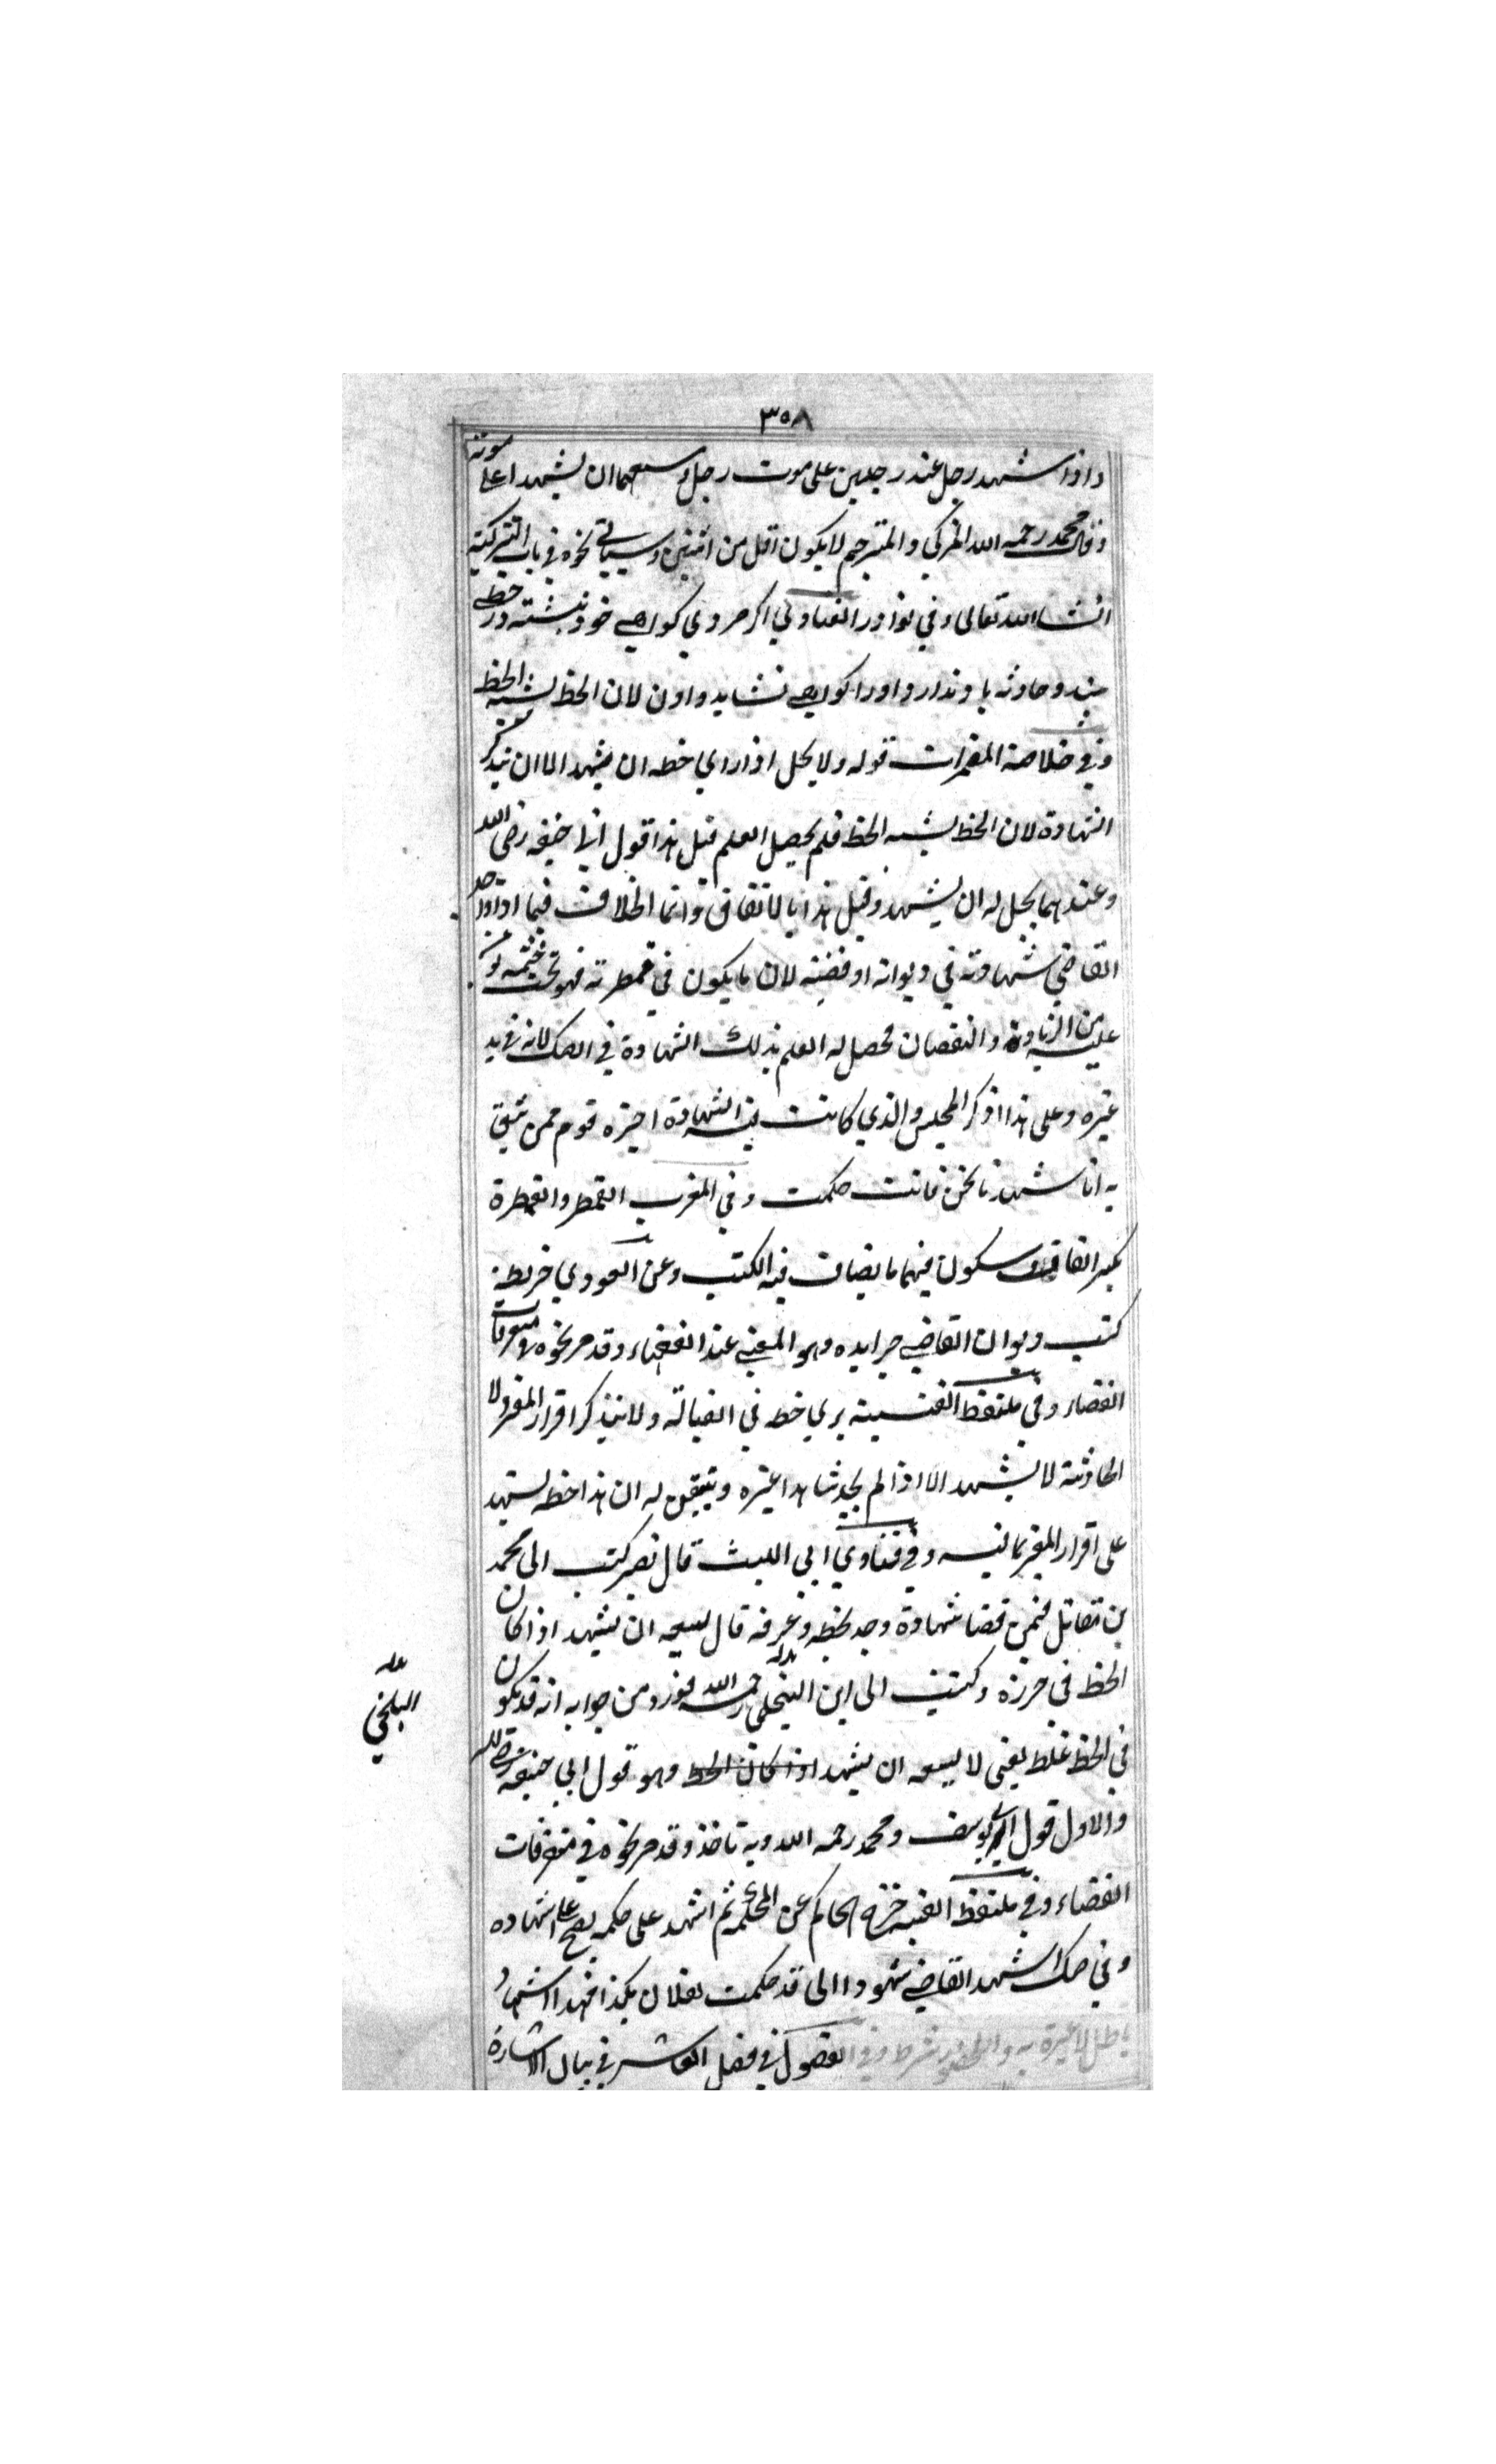 ٣٥٨
واذا شهد رجل عند رجلين على موت رجل وسعهما ان يشهدا على موته
وقال محمد رحمه الله المزكي والمترجم لا يكون اقل من اثنين وسياتي نحوه في باب التزكية
انشاء الله تعالى وفي نوادر الفتاوي اكر مردي كواهي خود نبشته در خطي
بيند وحادثه ياد ندارد اورا كواهي نشايد دادن لان الخط يشبه الخط
وفي خلاصة المقدمات قوله ولا يحل اذا راي خطه ان يشهد الا ان يتذكر
الشهادة لان الخط يشبه الخط فلم يحصل العلم قيل هذا قول ابي حنيفه رضي الله
وعندهما يحل له ان يشهد وقيل هذا بالاتفاق وانما الخلاف فيما اذا وجد
القاضي شهادته في ديوانه او قضيته لان ما يكون في قمطرته فهو تحت ختمه يؤمن
عليه من الزيادة والنقصان فحصل له العلم بذلك الشهادة في الصك لانه في يد
غيره وعلى هذا اذكر المجلس الذي كانت فيه الشهادة اخبره قوم ممن يثق
به انا شهدنا نحن فانت حكمت وفي المغرب القمطر والقمطرة
بكسر القاف وسكون فيهما ما يصان فيه الكتب وعن الغوري خريطة
كتب ديوان القاضي جرايده وهو المعني عند الفقهاء وقد مر نحوه في متفرقات
القضاء وفي ملتقط الغنية يري خطه في القبالة ولا يتذكر اقرار المقر ولا
الحادثة لا يشهد الا اذا لم يجد شاهدا غيره ويتيقن له ان هذا خطه يشهد
على اقرار المقر بما فيه وفي فتاوي ابي الليث قال نصر كتب الى محمد
بن مقاتل فيمن قضا شهادة وجد بخطه وعرفه قال يسعه ان يشهد اذا كان
الخط في حرزه وكتبت الى ابن البلخي رحمه الله فورد من جوابه انه قد يكون
في الخط غلط يعني لا يسعه ان يشهد اذا كان الخط وهو قول ابي حنيفه رضي الله
والاول قول ابي يوسف ومحمد رحمه الله وبه ناخذ وقد مر نحوه في متفرقات
القضاء وفي ملتقط الغنيه خرج الحاكم عن المحكمة ثم اشهد على حكمه يصح اشهاده
وفي صك اشهد القاضي شهودا اني قد حكمت لفلان بكذا فهذا الاشهاد
باطل لا عبرة به والحضور شرط وفي الفصول في فصل العاشر في بيان الاشارة
بدله
البلخي